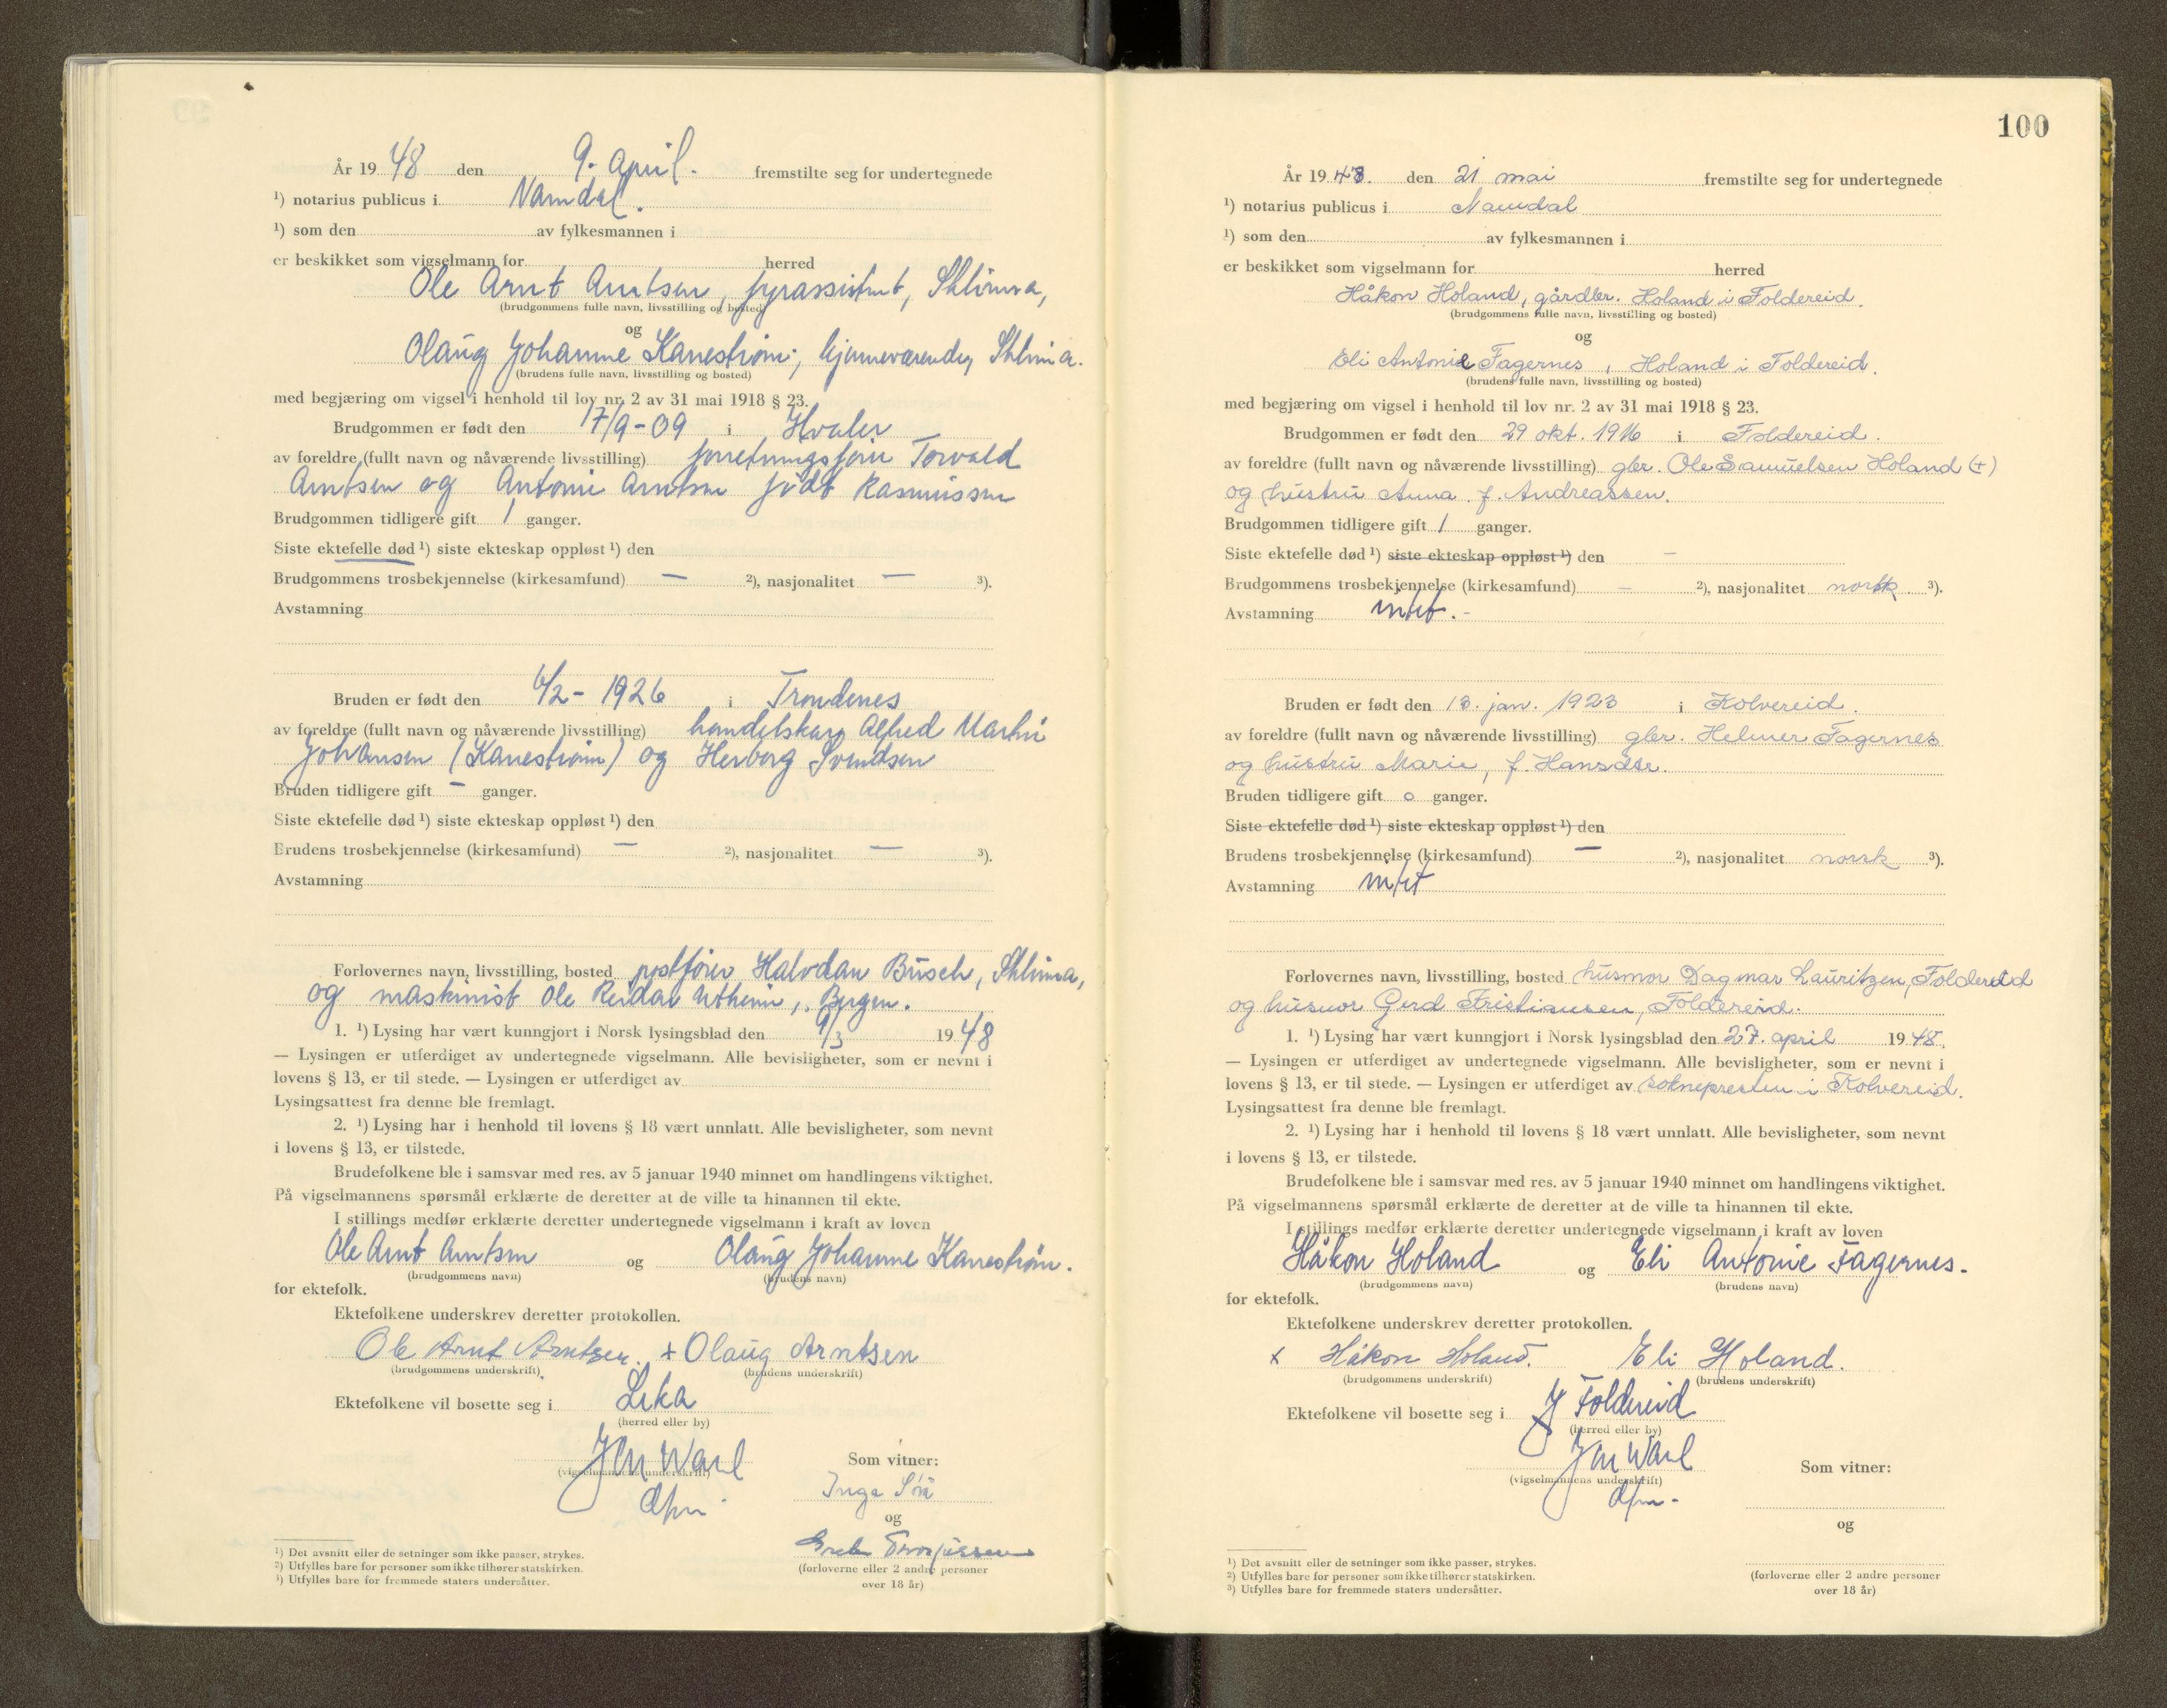 År 19 48 den 9. April. fremstilte seg for undertegnede
¹) notarius publicus i Namdal.
¹) som den av fylkesmannen i
er beskikket som vigselmann for herred
Ole Arnt Arntsen, fyrassistent, Sklinna,
(brudgommens fulle navn, livsstilling og bosted)
og
Olaug Johanne Kanestrøm, hjemmeværende, Sklinna.
(brudens fulle navn, livsstilling og bosted)
med begjæring om vigsel i henhold til lov nr. 2 av 31 mai 1918 § 23.
Brudgommen er født den 17/9-09 i Hvaler
av foreldre (fullt navn og nåværende livsstilling) forretningsfører Torvald
Arntsen og Antonie Arntsen født Rasmussen
Brudgommen tidligere gift 1 ganger.
Siste ektefelle død ¹) siste ekteskap oppløst ¹) den
Brudgommens trosbekjennelse (kirkesamfund) — ²), nasjonalitet — ³).
Avstamning
Bruden er født den 6/2 - 1926 i Trondenes
av foreldre (fullt navn og nåværende livsstilling) handelskar Alfred Martin
Johansen (Kanestrøm) og Herborg Svendsen
Bruden tidligere gift — ganger.
Siste ektefelle død ¹) siste ekteskap oppløst ¹) den
Brudens trosbekjennelse (kirkesamfund) — ²), nasjonalitet — ³).
Avstamning
Forlovernes navn, livsstilling, bosted postfører Halvdan Busch, Sklinna,
og maskinist Ole Reidar Utheim, Bergen.
1. ¹) Lysing har vært kunngjort i Norsk lysingsblad den 9/3 19 48
— Lysingen er utferdiget av undertegnede vigselmann. Alle bevisligheter, som er nevnt i
lovens § 13, er til stede. — Lysingen er utferdiget av
Lysingsattest fra denne ble fremlagt.
2. ¹) Lysing har i henhold til lovens § 18 vært unnlatt. Alle bevisligheter, som nevnt
i lovens § 13, er tilstede.
Brudefolkene ble i samsvar med res. av 5 januar 1940 minnet om handlingens viktighet.
På vigselmannens spørsmål erklærte de deretter at de ville ta hinannen til ekte.
I stillings medfør erklærte deretter undertegnede vigselmann i kraft av loven
Ole Arnt Arntsen og Olaug Johanne Kanestrøm.
(brudgommens navn) (brudens navn)
for ektefolk.
Ektefolkene underskrev deretter protokollen.
Ole Arnt Arntsen. x Olaug Arntsen
(brudgommens underskrift) (brudens underskrift)
Ektefolkene vil bosette seg i Leka
(herred eller by)
Som vitner:
(vigselmannens underskrift)
Inga
og
(forloverne eller 2 andre personer
over 18 år)
¹) Det avsnitt eller de setninger som ikke passer, strykes.
²) Utfylles bare for personer som ikke tilhører statskirken.
³) Utfylles bare for fremmede staters undersåtter.
100
År 19 48. den 21 mai fremstilte seg for undertegnede
¹) notarius publicus i Namdal
¹) som den av fylkesmannen i
er beskikket som vigselmann for herred
Håkon Holand, gårdbr. Holand i Foldereid.
(brudgommens fulle navn, livsstilling og bosted)
og
Eli Antonie Fagernes, Holand i Foldereid.
(brudens fulle navn, livsstilling og bosted)
med begjæring om vigsel i henhold til lov nr. 2 av 31 mai 1918 § 23.
Brudgommen er født den 29 okt. 1916 i Foldereid.
av foreldre (fullt navn og nåværende livsstilling) gbr. Ole Samuelsen Holand (+)
og hustru Anna f. Andreassen.
Brudgommen tidligere gift 1 ganger.
Siste ektefelle død ¹) siste ekteskap oppløst ¹) den —
Brudgommens trosbekjennelse (kirkesamfund) — ²), nasjonalitet norsk ³).
Avstamning
Bruden er født den 13. jan. 1923 i Kolvereid.
av foreldre (fullt navn og nåværende livsstilling) gbr. Helmer Fagernes
og hustru Marie, f. Hansdtr.
Bruden tidligere gift 0 ganger.
Siste ektefelle død ¹) siste ekteskap oppløst ¹) den
Brudens trosbekjennelse (kirkesamfund) — ²), nasjonalitet norsk ³).
Avstamning
Forlovernes navn, livsstilling, bosted husmor Dagmar Lauritzen, Foldereid
og husmor Gerd Kristiansen, Foldereid.
1. ¹) Lysing har vært kunngjort i Norsk lysingsblad den 27. april 19 48.
— Lysingen er utferdiget av undertegnede vigselmann. Alle bevisligheter, som er nevnt i
lovens § 13, er til stede. — Lysingen er utferdiget av soknepresten i Kolvereid.
Lysingsattest fra denne ble fremlagt.
2. ¹) Lysing har i henhold til lovens § 18 vært unnlatt. Alle bevisligheter, som nevnt
i lovens § 13, er tilstede.
Brudefolkene ble i samsvar med res. av 5 januar 1940 minnet om handlingens viktighet.
På vigselmannens spørsmål erklærte de deretter at de ville ta hinannen til ekte.
I stillings medfør erklærte deretter undertegnede vigselmann i kraft av loven
Håkon Holand og Eli Antonie Fagernes.
(brudgommens navn) (brudens navn)
for ektefolk.
Ektefolkene underskrev deretter protokollen.
x Håkon Holand. Eli Holand.
(brudgommens underskrift) (brudens underskrift)
Ektefolkene vil bosette seg i Foldereid
(herred eller by)
Som vitner:
(vigselmannens underskrift)
og
(forloverne eller 2 andre personer
over 18 år)
¹) Det avsnitt eller de setninger som ikke passer, strykes.
²) Utfylles bare for personer som ikke tilhører statskirken.
³) Utfylles bare for fremmede staters undersåtter.